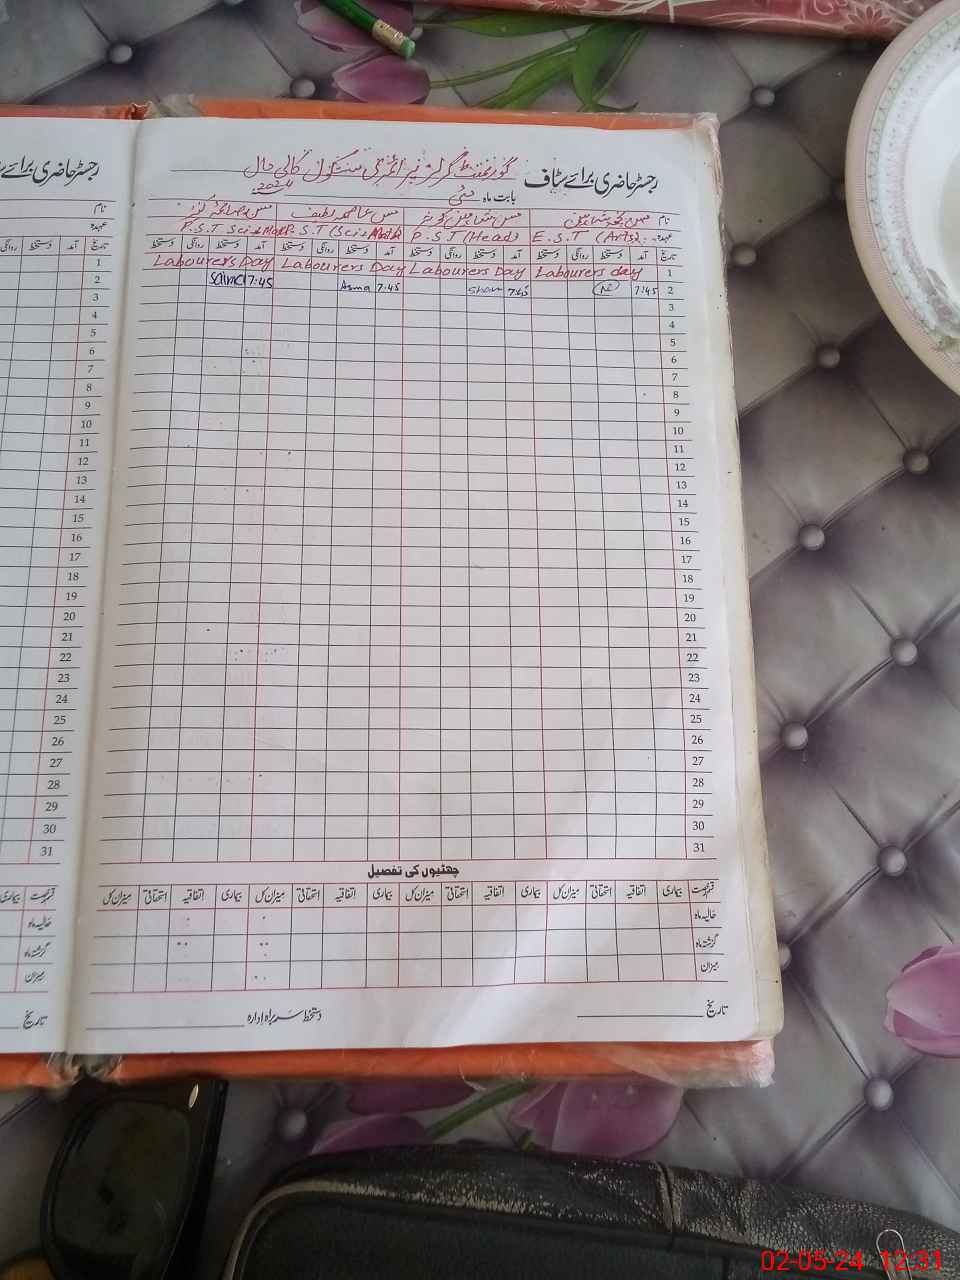 رجسٹر حاضری برائے سٹاف گورنمنٹ گرلز پرائمری سکول کالی مال
بابت ماہ مئی 2024
نام مس مس شاہین کوثر مس عاصمہ لطیف مس صائمہ
عہدہ E.S.T (Arts) P.S.T (Head) P.S.T (Sci: Math P.S.T Sci: Mat
تاریخ آمد دستخط روانگی دستخط آمد دستخط روانگی دستخط آمد دستخط روانگی دستخط آمد دستخط روانگی دستخط
1 Labourers day Labourers Day Labourers Day Labourers Day
2 7:45 7:45 Shan 7:45 Asma 7:45 Saima
3
4
5
6
7
8
9
10
11
12
13
14
15
16
17
18
19
20
21
22
23
24
25
26
27
28
29
30
31
چھٹیوں کی تفصیل
قسم رخصت بیماری اتفاقیہ استحقاقی میزان کل بیماری اتفاقیہ استحقاقی میزان کل بیماری اتفاقیہ استحقاقی میزان کل بیماری اتفاقیہ استحقاقی میزان کل
حالیہ ماہ
گزشتہ ماہ
میزان
تاریخ دستخط سربراہ ادارہ
رجسٹر حاضری برائے
نام
عہدہ
تاریخ آمد دستخط روانگی
1
2
3
4
5
6
7
8
9
10
11
12
13
14
15
16
17
18
19
20
21
22
23
24
25
26
27
28
29
30
31
قسم رخصت بیماری
حالیہ ماہ
گزشتہ ماہ
میزان
تاریخ
02-05-24 12:31